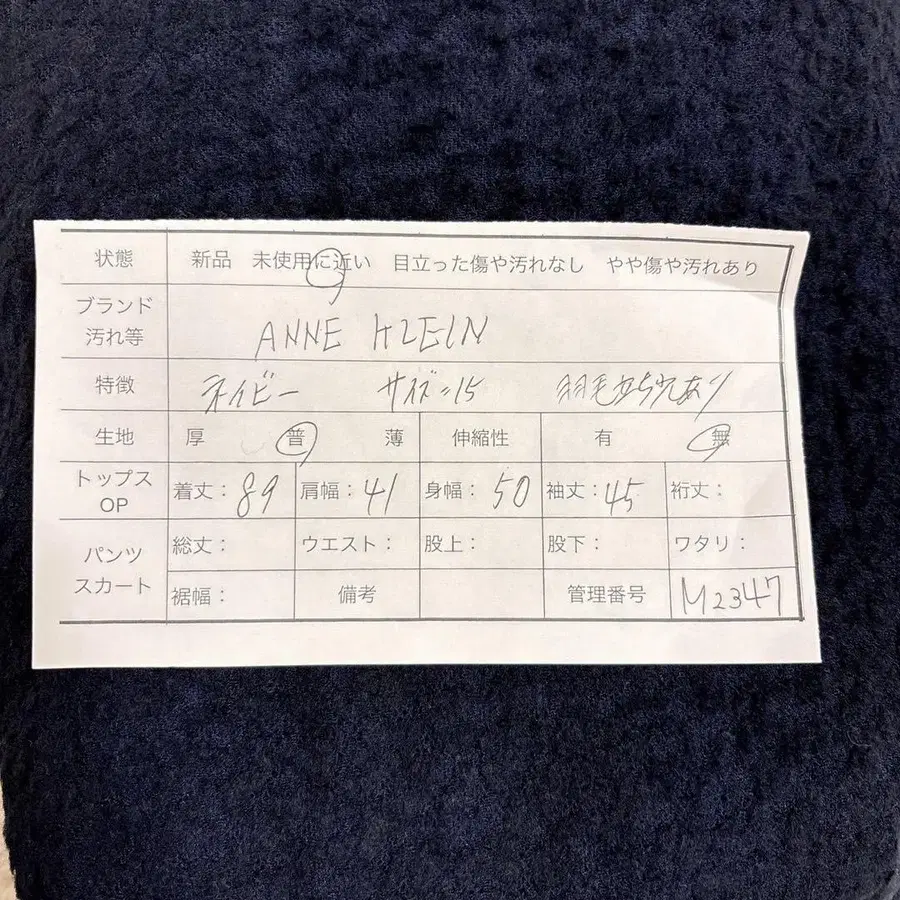 状態 新品 未使用に近い 目立った傷や汚れなし やや傷や汚れあり
ブランド
汚れ等 ANNE KLEIN
特徴 ネイビー サイズ:15 羽毛立ち穴あり
生地 厚 普 薄 伸縮性 有 無
トップス
OP 着丈: 89 肩幅: 41 身幅: 50 袖丈: 45 裄丈:
パンツ
スカート 総丈: ウエスト: 股上: 股下: ワタリ:
裾幅: 備考 管理番号 M2347